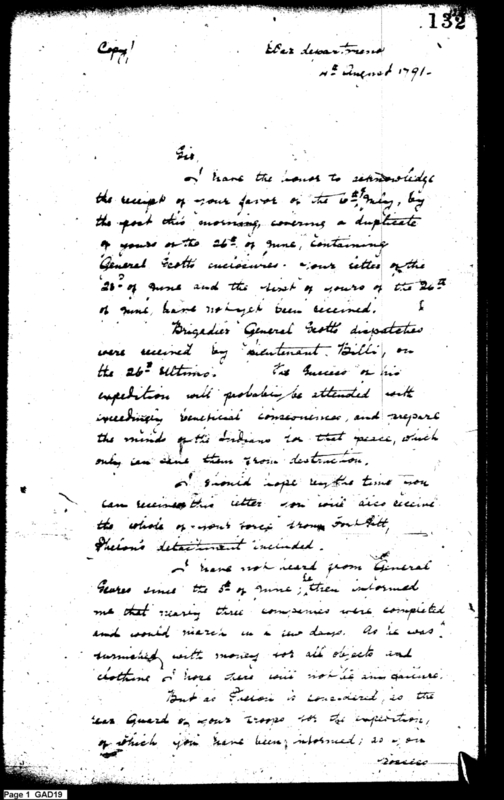 132
Copy!
War department
4th August 1791.
Sir,
I have the honor to acknowledge
the receipt of your favor of the 10th July, by
the post this morning, covering a duplicate
of yours of the 26th of June, containing
General Scotts enclosures. your letter of the
of June and the first of yours of the 26th
of June, have not yet been received.
Brigadier General Scotts dispatches
were received by Lieutenant on
the 26th Ultimo. The success of his
expedition will probably be attended with
exceedingly beneficial consequences, and prepare
the minds of the Indians for that peace, which
only can save them from destruction.
I should hope by the time you
can receive this letter you will also receive
the whole of your force from Fort Pitt,
Phelon's detachment included.
I have not heard from General
since the 5th of June; he then informed
me that nearly three companies were completed
and would march in a few days. As he was
furnished with money for all objects and
clothing I hope there will not be any failure.
But as Phelon is considered, as the
rear Guard of your troops for the expedition,
of which you have been, informed; as you
Page 1 GAD19